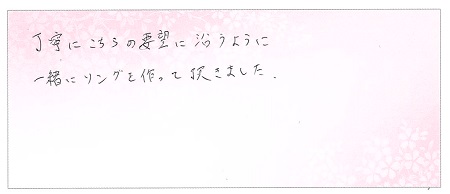 丁寧にこちらの要望に沿うように
一緒にリングを作って頂きました.